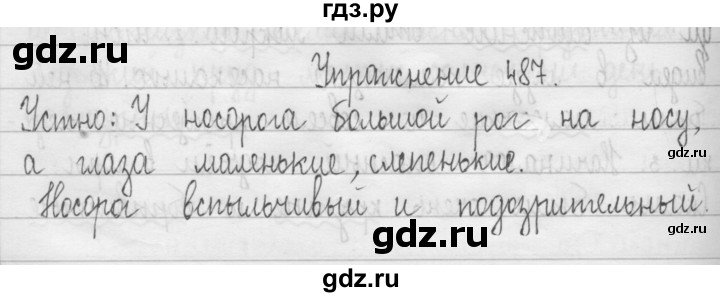 гдз.ру
gdz.ru gdz.ru
Упражнение 487.
Устно: У носорога большой рог на носу,
gdz.ru
а глаза маленькие, слепенькие.
gdz.ru
Носорог вспыльчивый и подозрительный.
gdz.ru gdz.ru
gdz.ru